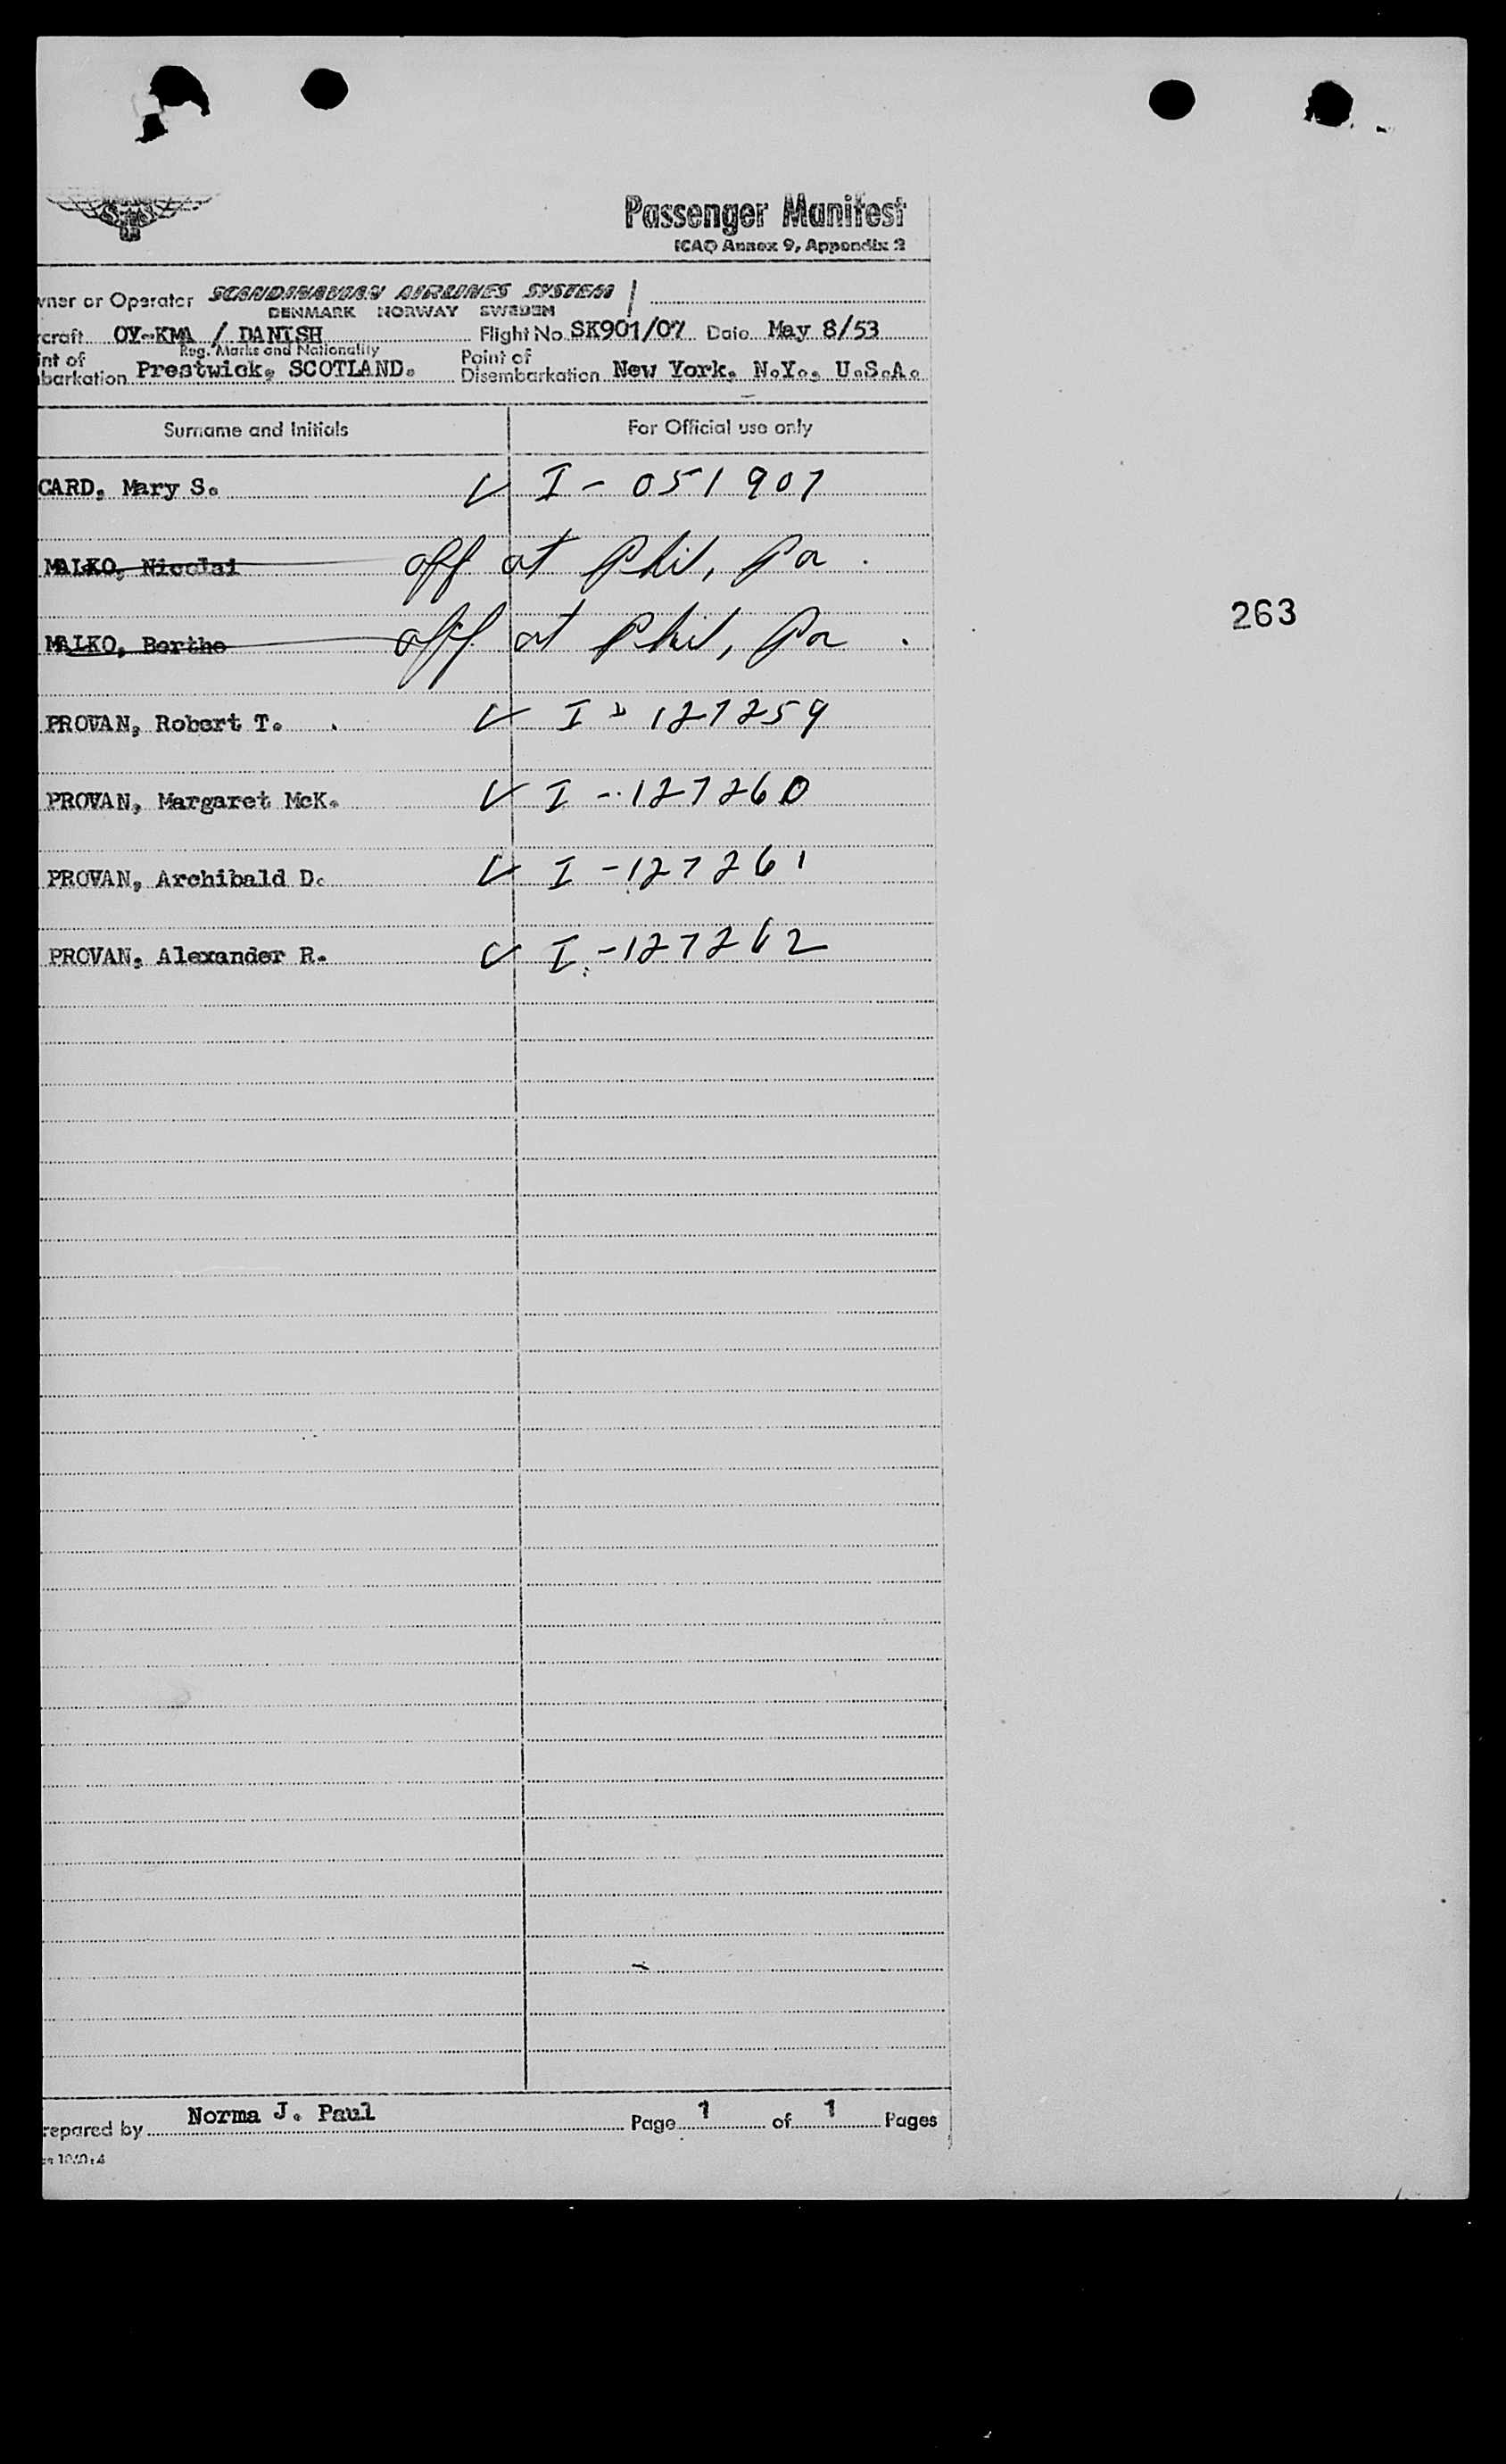 Passenger Manifest
ICAO Annex 9, Appendix 2
wner or Operator SCANDINAVIAN AIRLINES SYSTEM
DENMARK NORWAY SWEDEN
rcraft OY-KMA / DANISH Flight No. SK901/07 Date May 8/53
Reg. Marks and Nationality
int of barkation Prestwick, SCOTLAND. Point of Disembarkation New York, N.Y., U.S.A.
Surname and Initials For Official use only
CARD, Mary S. ✓ I - 051907
MALKO, Nicolai off at Phil, Pa.
MALKO, Berthe off at Phil, Pa.
263
PROVAN, Robert T. ✓ I - 127259
PROVAN, Margaret McK. ✓ I - 127260
PROVAN, Archibald D. ✓ I - 127261
PROVAN, Alexander R. ✓ I - 127262
repared by Norma J. Paul Page 1 of 1 Pages